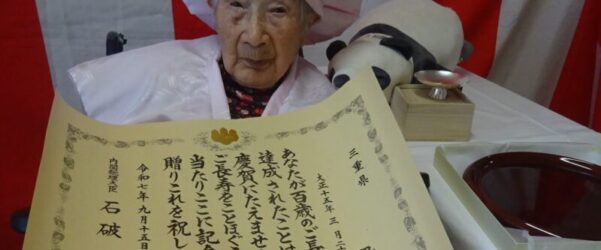 三重県
大正十五年三月二
あなたが百歳のご長
達成されたことは
慶賀にたえませ
ご長寿をことほぐ
当たりここに記念
贈りこれを祝し
令和七年九月十五日
内閣総理大臣 石破